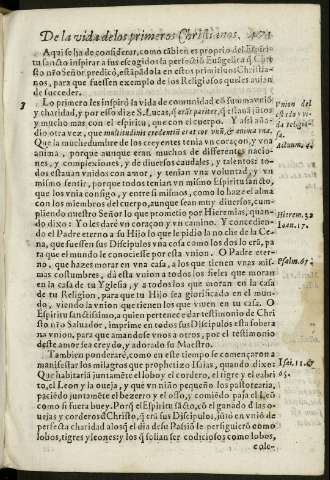 De la vida de los primeros Christianos. 471
Aqui se ha de considerar, como tãbien es proprio del Espiri-
tu sancto inspirar a sus escogidos la perfectiõ Euãgelica q̃ Chri-
sto nño Señor predicó, estãpãdola en estos primitiuos Christia-
nos, para que fuessen exemplo de los Religiosos que les auian
de succeder.
3
Lo primero les inspiró la vida de comunidad cõ summa vniõ
y charidad, y por esso dize S. Lucas, q̃ erãt pariter, q̃ estauã jũtos
y mucho mas con el espiritu, que con el cuerpo. Y assi aña-
dio otra vez, que multitudinis credentiũ erat cor vnũ, & anima vna.
Que la muchedumbre de los creyentes tenia vn coraçon, y vna
anima, porque aunque eran muchos de differentes nacio-
nes, y complexiones, y de diuersos caudales, y talentos: to-
dos estauan vnidos con amor, y tenian vna voluntad, y vn
mismo sentir, porque todos tenian vn mismo Espiritu sancto,
que los vnia consigo, y entre si mismos, como lo haze el alma
con los miembros del cuerpo, aunque sean muy diuersos, cum-
pliendo nuestro Señor lo que prometio por Hieremias, quan-
do dixo: Yo les daré vn coraçon y vn camino. Y concedien-
do el Padre eterno a su Hijo lo que le pidio la noche de la Ce-
na, que fuessen sus Discipulos vna cosa como los dos lo erã, pa-
ra que el mundo le conociesse por esta vnion. O Padre eter-
no, que hazes morar en vna casa, a los que tienen vnas mis-
mas costumbres, dà esta vnion a todos los fieles que moran
en la casa de tu Yglesia, y a todos los que moran en la casa
de tu Religion, para que tu Hijo sea glorificado en el mun-
do, viendo la vnion que tienen los que viuen en tu casa. O
Espiritu sanctissimo, a quien pertenece dar testimonio de Chri-
sto nño Saluador, imprime en todos sus Discipulos esta sobera
na vnion, para que amandose vnos a otros, por el testimonio
deste amor sea creydo, y adorado su Maestro.
Tambien ponderaré, como en este tiempo se començaron a
manifestar los milagros que prophetizo Isaias, quando dixo:
Que habitaria juntamẽte el lobo y el cordero, el tigre y el cabri
to, el Leon y la oueja, y que vn niño pequeño los pastorearia,
paciẽdo juntamẽte el bezerro y el osso, y comiẽdo paja el Leõ
como si fuera buey. Porq̃ el Espiritu sãcto, cõ el ganado d'las o-
uejas y corderos d'Christo, q̃ erã sus Discipulos, jũtó en vniõ de
perfecta charidad a los q̃ el dia de su Passiõ le persiguierõ como
lobos, tigres y leones: y los q̃ solian ser codiciosos como lobos,
cole-
Vnion del
estado y vi-
da religio-
sa.
Actuum. 4.
Hierem. 32
Ioan. 17.
Psalm. 67.
Isai. 11. &
65.